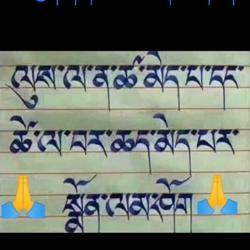 ལུས་ལ་ན་ཚ་མེད་པ་དང་
ཚེ་ལ་བར་ཆད་མེད་པར་
སྨོན་ལམ་ཞོག